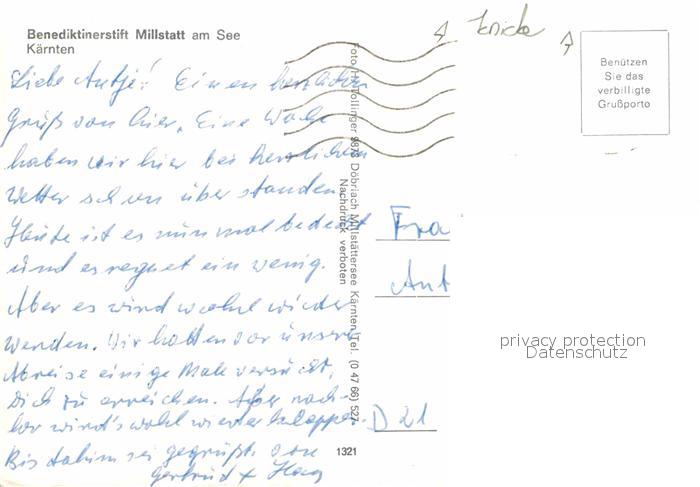 Benediktinerstift Millstatt am See
Kärnten
Knicke
Benützen
Sie das
verbilligte
Grußporto
Liebe Antje! Einen herzlichen
Gruß von hier. Eine Woche
haben wir hier bei herrlichem
Wetter schon überstanden.
Heute ist es nun mal bedeckt
und es regnet ein wenig.
Aber es wird wohl wieder
werden. Wir hatten vor unserer
Abreise einige Male versucht,
Dich zu erreichen. Aber nach-
her wird's wohl wieder klappen.
Bis dahin sei gegrüßt von
Gertrud +
Foto H. Tollinger 9873 Döbriach Millstättersee Kärnten Tel. (0 47 66) 527
Nachdruck verboten
1321
Fra
Ant
D 21
privacy protection
Datenschutz